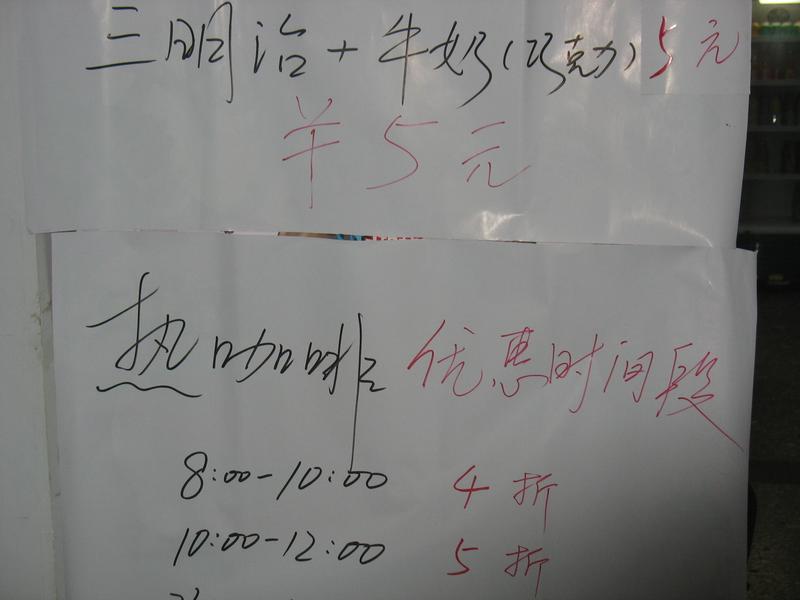 三明治+牛奶(巧克力)5元
羊5元
热咖啡 优惠时间段
8:00-10:00 4折
10:00-12:00 5折